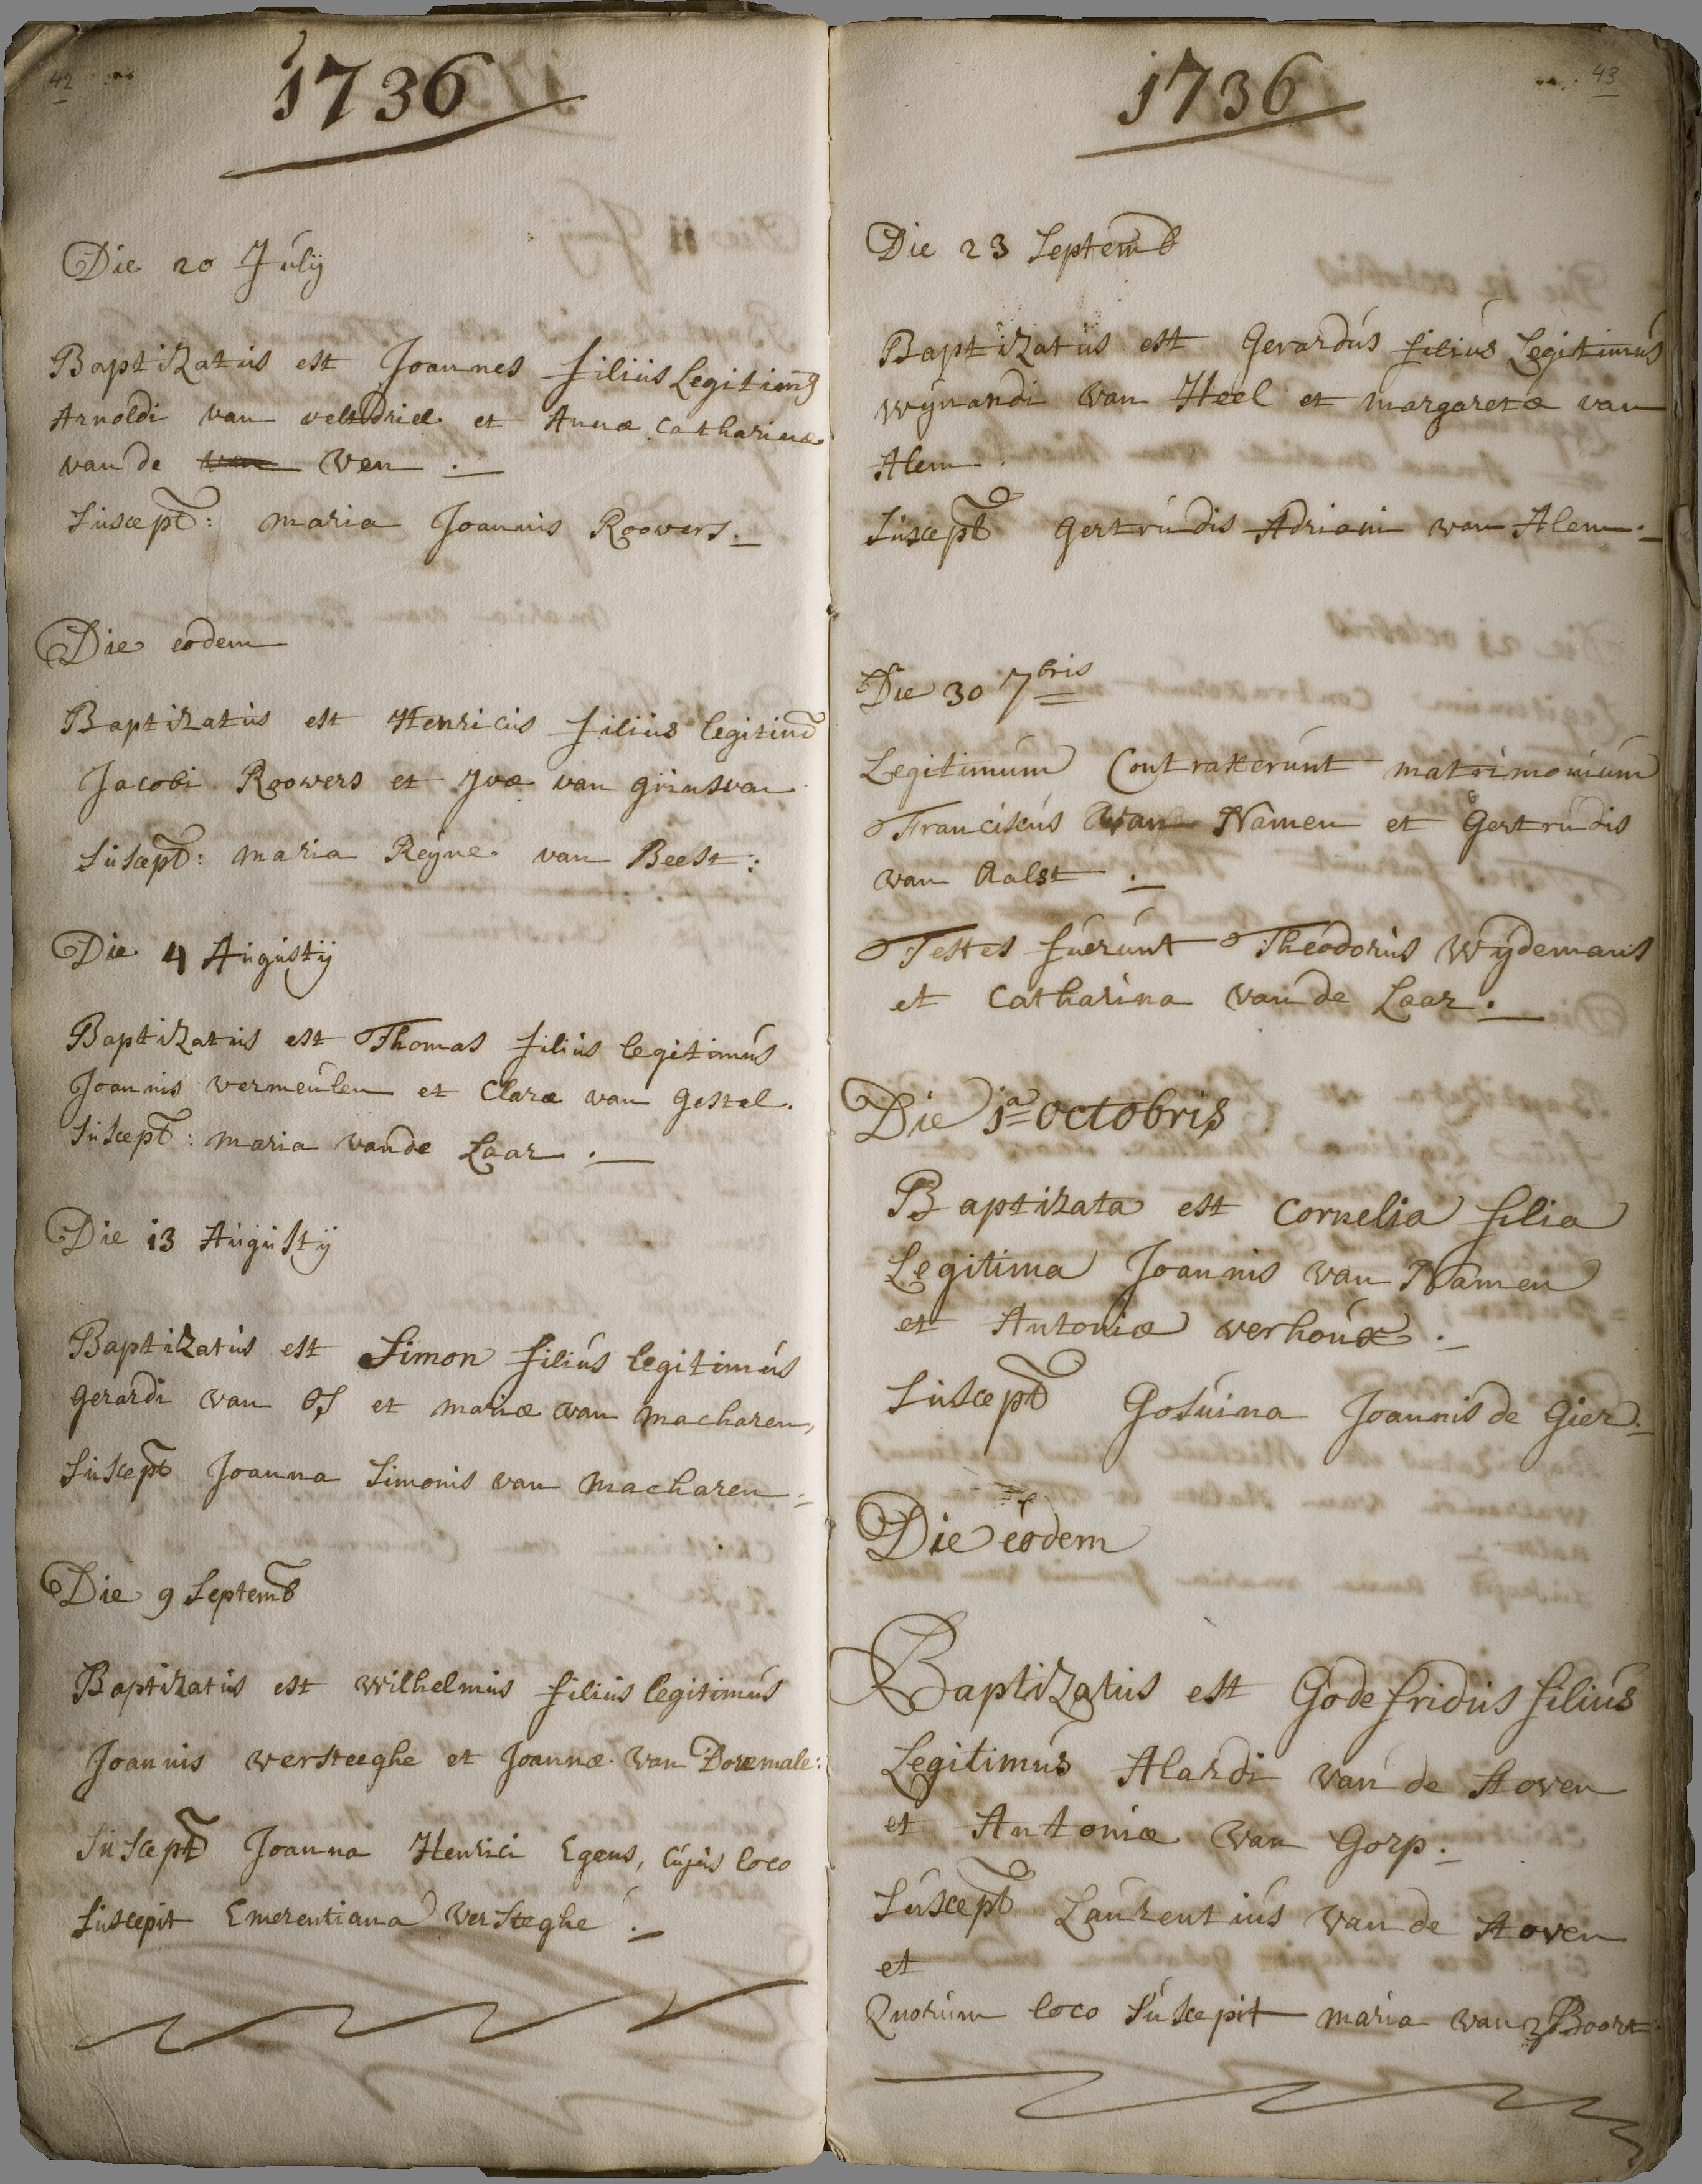 42
1736
Die 20 Julij
Baptizatus est Joannes filius Legitim9
Arnoldi van veltdriel et Annæ Catharinæ
van de van Ven .
Suscept: maria Joannis Roovers.
Die eodem
Baptizatus est Henricus filius legitim
Jacobi Roovers et Yvæ van grinsven
Suscept: maria Reyne van Beest:
Die 4 Augustij
Baptizatus est Thomas filius legitimus
Joannis vermeulen et Claræ van gestel.
Suscept: maria vande Laar .
Die 13 Augustij
Baptizatus est Simon filius legitimus
gerardi van Os et mariæ van macharen,
Suscept Joanna Simonis van macharen
Die 9 Septemb
Baptizatus est wilhelmus filius legitimus
Joannis versteeghe et Joannæ van Doremale:
Suscept Joanna Henrici Egens, cujus loco
suscepit Emerentiana versteghe .
43
1736
Die 23 Septemb
Baptizatus est Gerardus filius Legitimus
wynandi van Heel et margaretæ van
Alem
Suscept gertrudis Adriani van Alem.
Die 30 7bris
Legitimum Contraxerunt matrimonium
Franciscus van Namen et Gertrudis
van Aalst .
Testes fuerunt Theodorus Wydemans
et Catharina van de Laar .
Die 1a octobris
Baptizata est Cornelia filia
Legitima Joannis van Namen
et Antoniæ verhoux .
Suscept Gosuina Joannis de Gier.
Die eodem
Baptizatus est Godefridus filius
Legitimus Alardi van de Stoven
et Antoniæ van Gorp.
Suscept Laurentius van de Stoven
et
Quorum loco suscepit maria van Boort